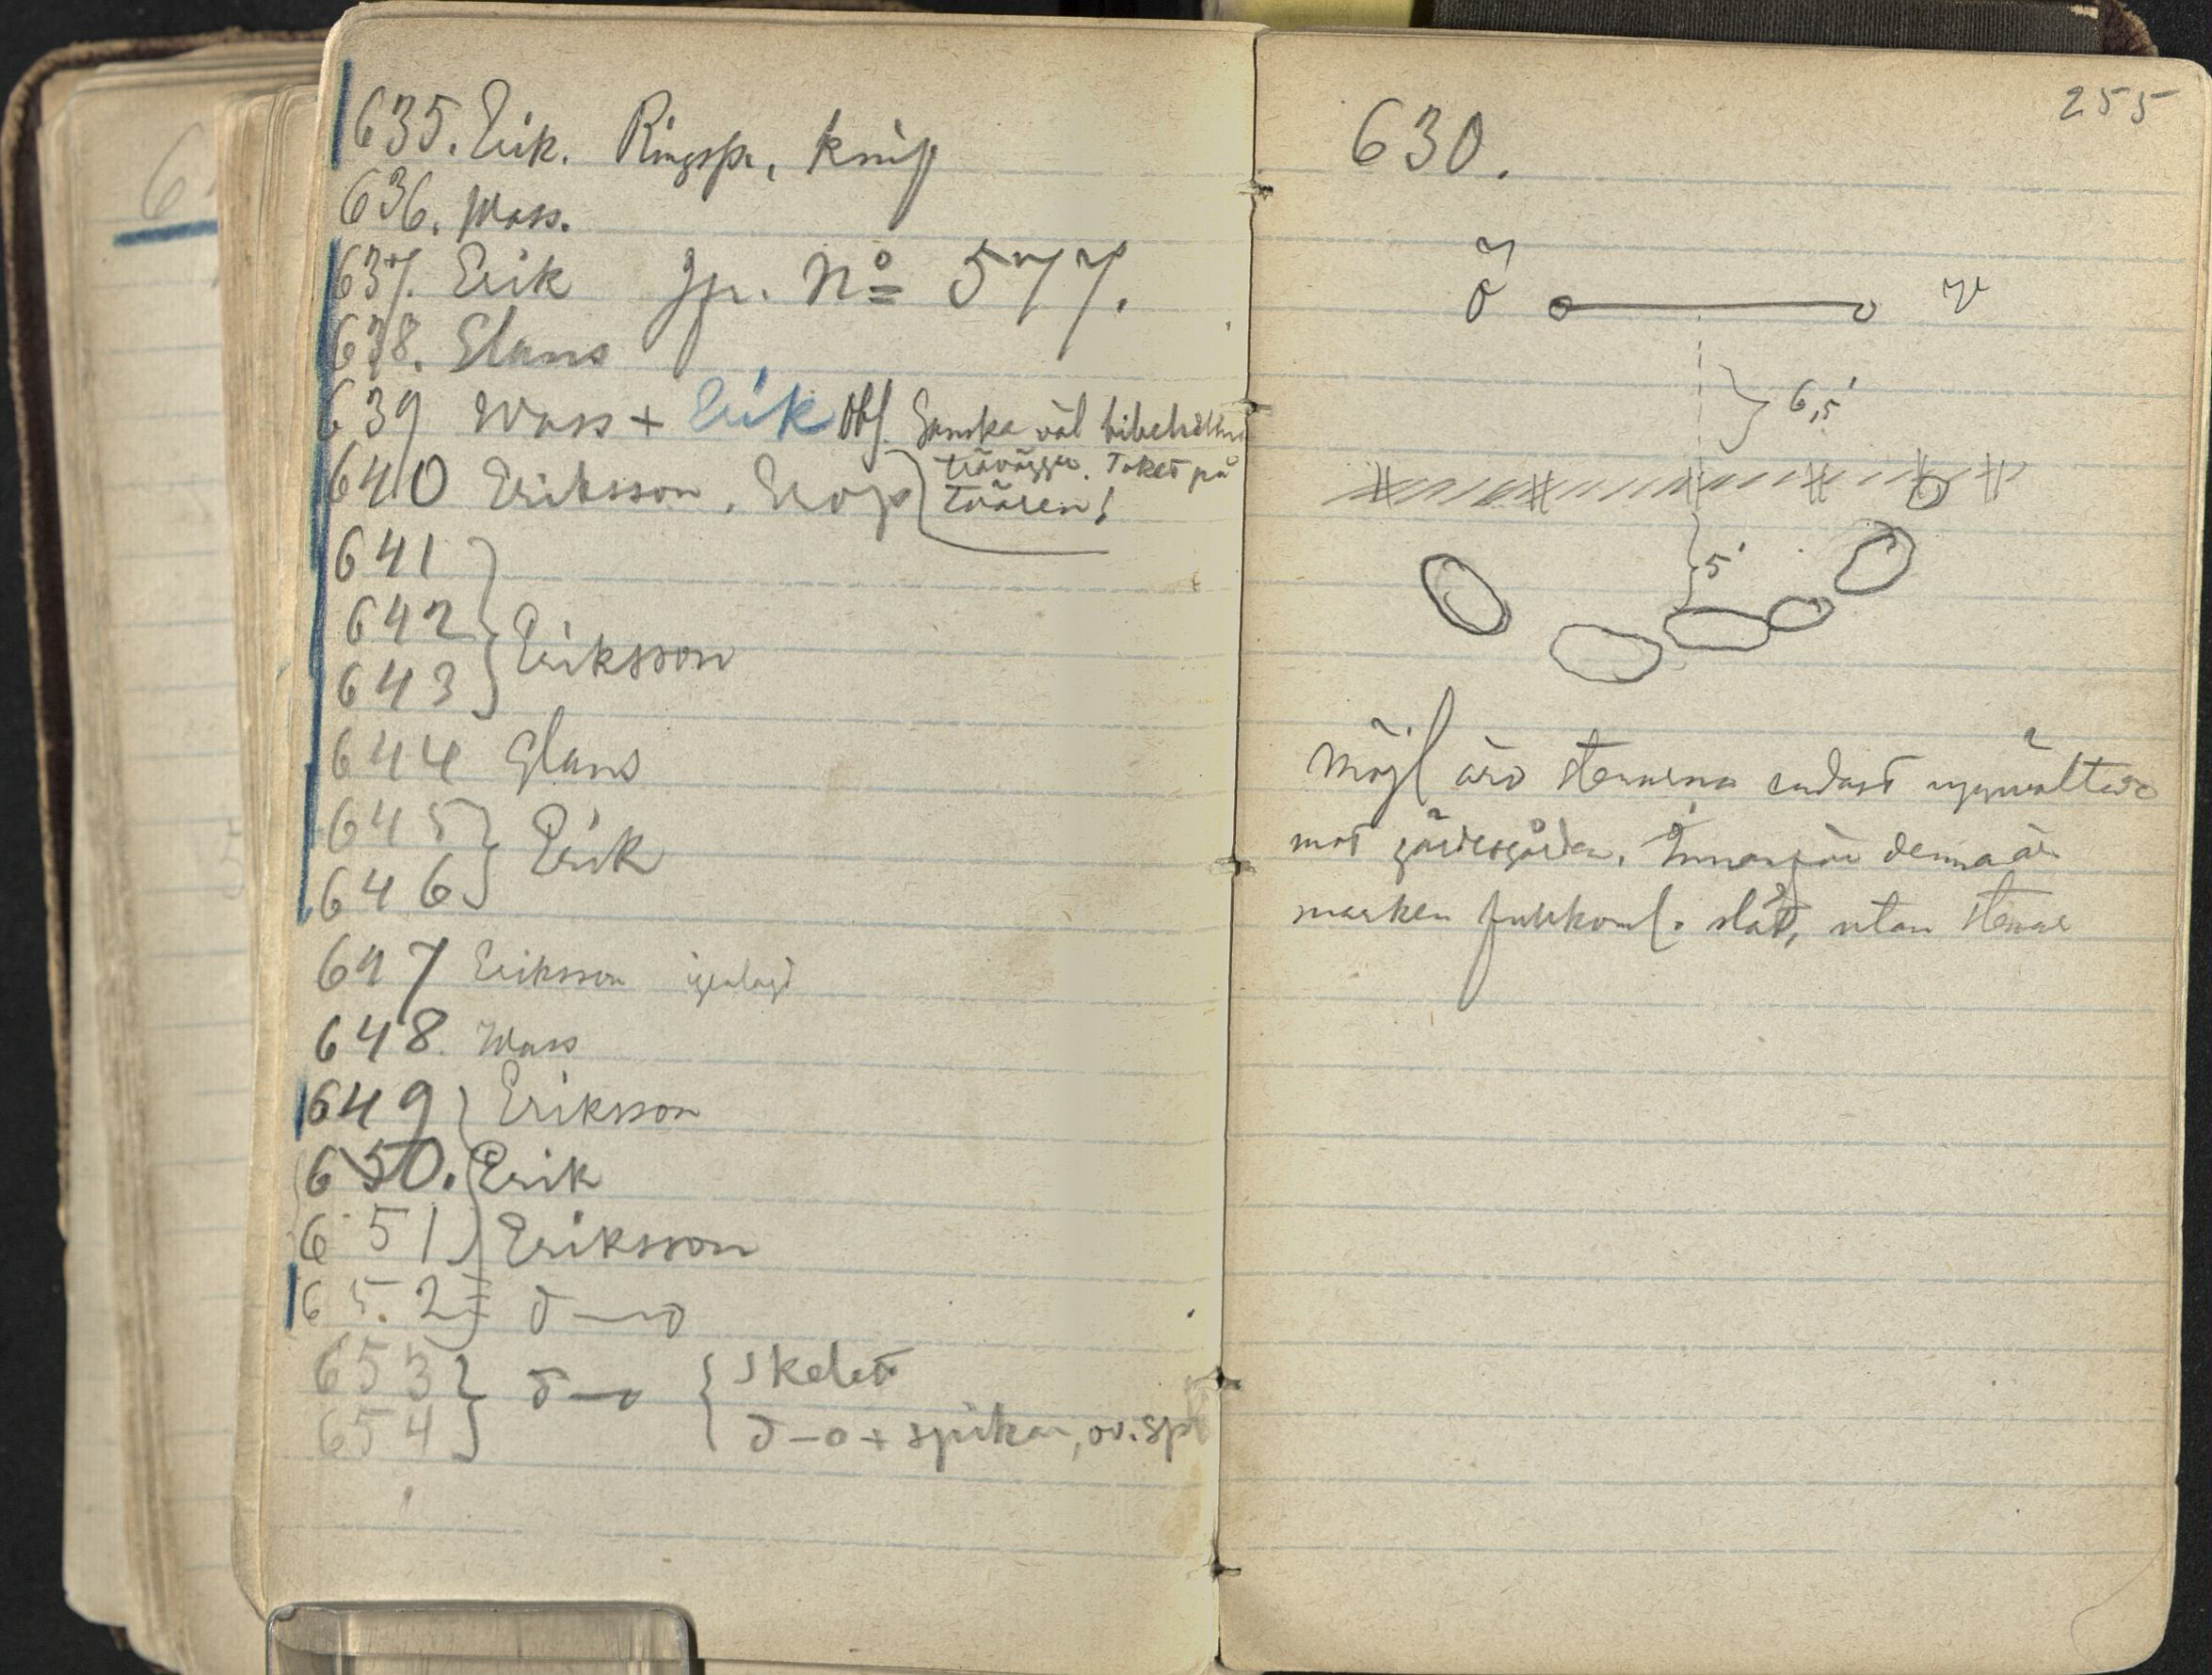 635. Erik. Ringsp., knif
636. Wass.
637. Erik Jfr. No 577.
638. Glans
639 Wass + Erik Obs. Ganska väl bibehållna
träväggar. Taket på
640 Eriksson.
tvären!
641
642
643
Eriksson
644 Glans
645
646
Erik
647 Eriksson igenlagd
648. Wass
649 Eriksson
650. Erik
651 Eriksson
652 δ—o
653
654
δ—o
Skelett
δ—o + spikar, ov. sp
255
630.
ö
v
6,5'
5'
Möjl äro stenarna endast uppvältade
mot gärdesgården. Innanför denna är
marken fullkoml. slät, utan stenar